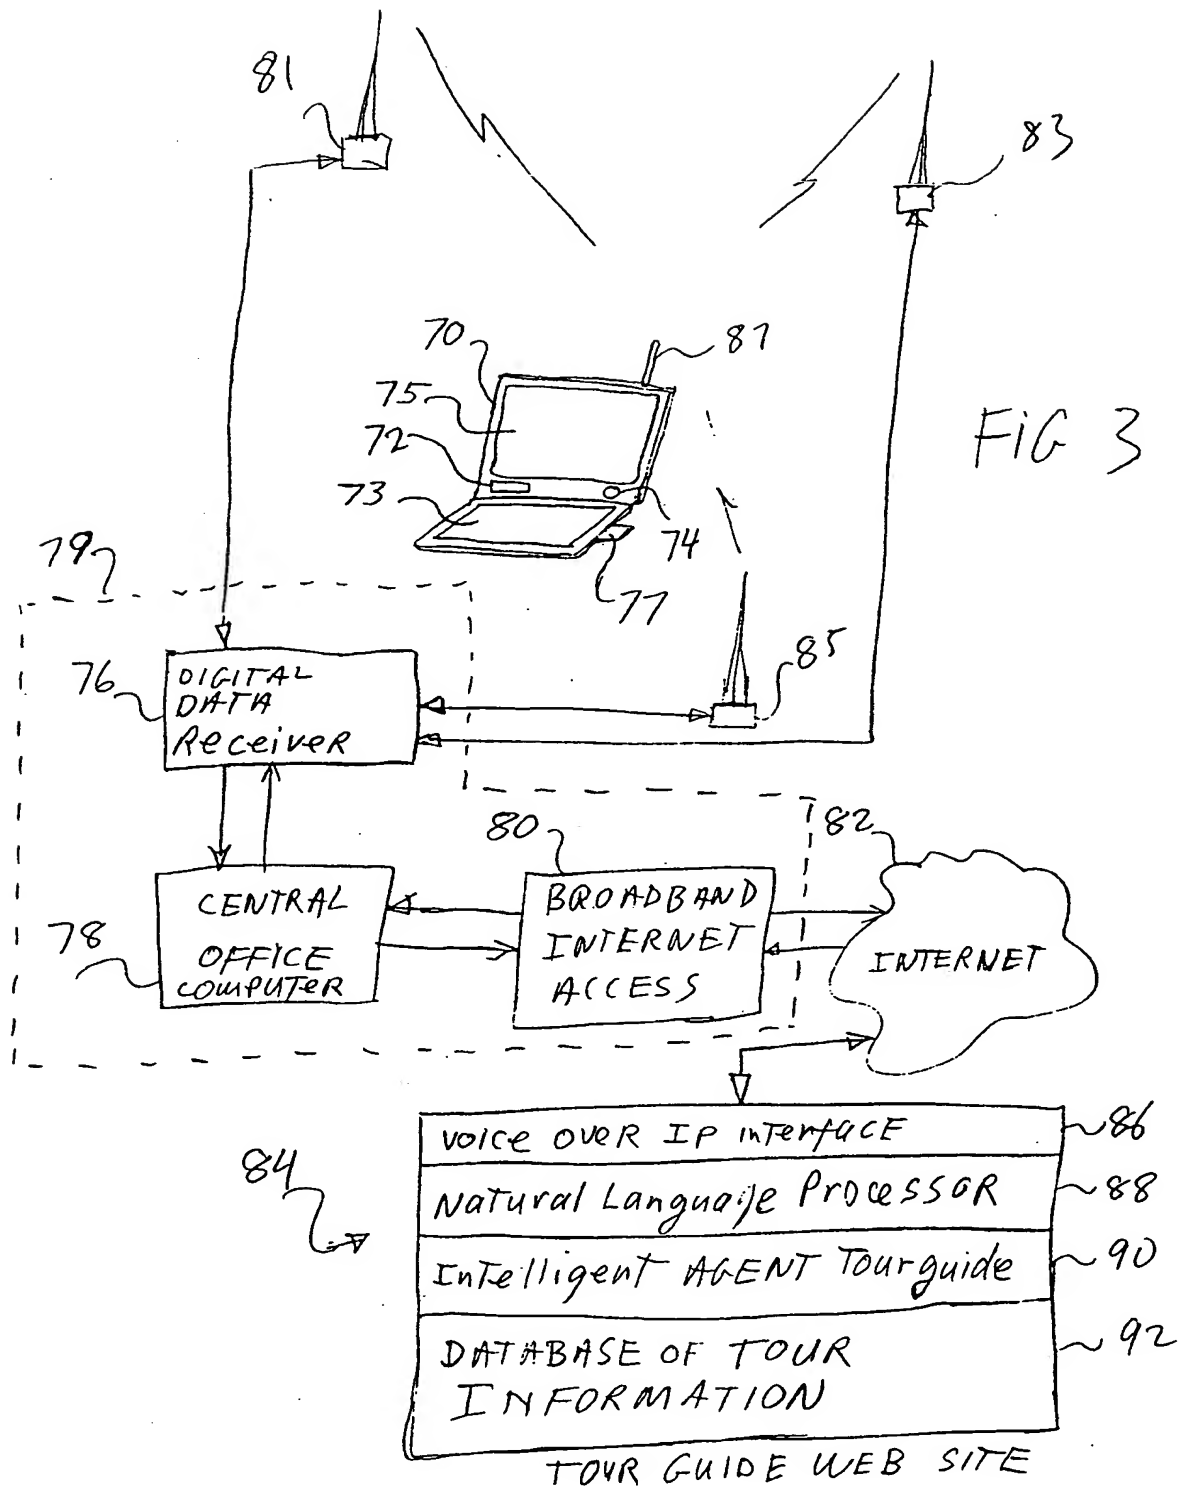 81
83
70
87
75
72
73
74
77
FIG 3
79
76
DIGITAL
DATA
Receiver
85
80
82
CENTRAL
OFFICE
COMPUTER
78
BROADBAND
INTERNET
ACCESS
INTERNET
84
VOICE OVER IP interface
86
Natural Language Processor
88
Intelligent AGENT Tourguide
90
DATABASE OF TOUR
INFORMATION
92
TOUR GUIDE WEB SITE